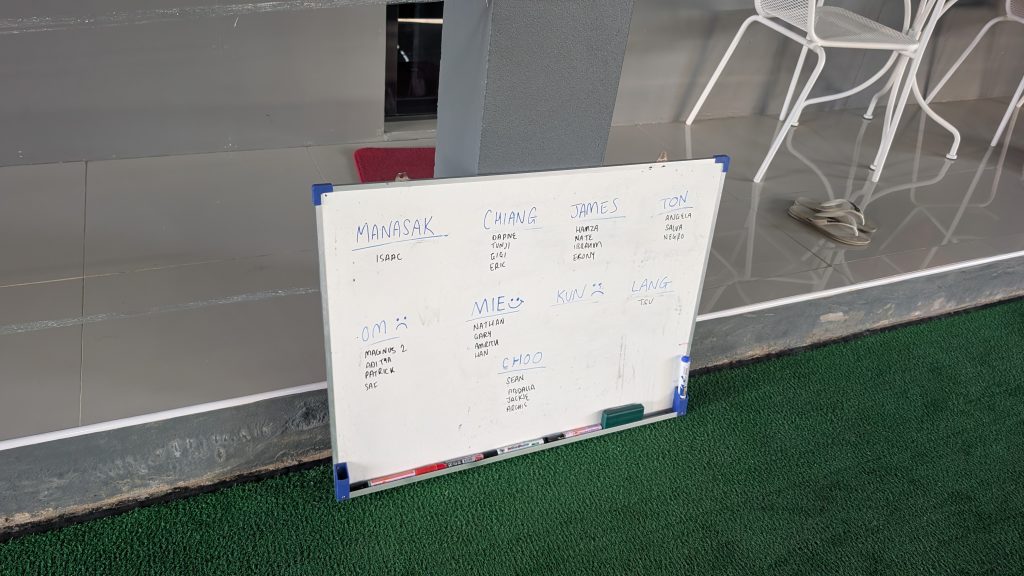 MANASAK
ISAAC
CHIANG
DAPNE
TUNJI
GIGI
ERIC
JAMES
HAMZA
NATE
IBRAHIM
EBONY
TON
ANGELA
SALVA
NEGRO
OM
MAGNUS 2
ADITYA
PATRICK
SAI
MIE
NATHAN
GARY
AMRITA
HAN
KUN
LANG
CHOO
SEAN
ABDALLA
JACKIE
ARCHIE